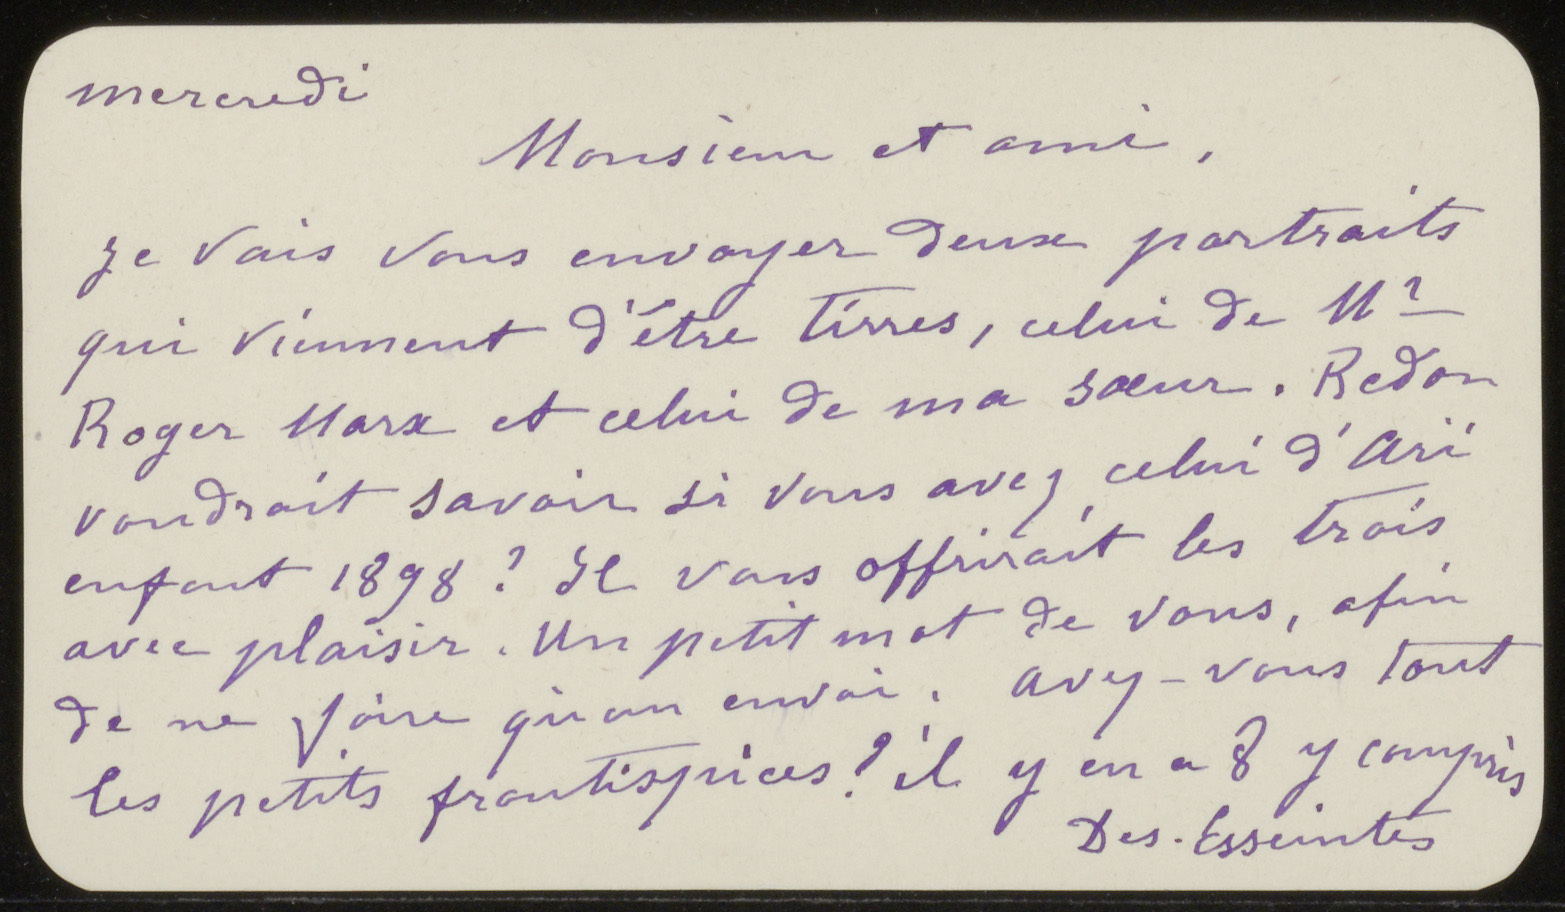 mercredi
Monsieur et ami,
Je vais vous envoyer deux portraits
qui viennent d'être tirres, celui de Mr
Roger Marx et celui de ma sœur. Redon
voudrait savoir si vous avez celui d'Ari
enfant 1898? Il vous offrirait les trois
avec plaisir. Un petit mot de vous, afin
de ne faire qu'un envoi. avez-vous tout
les petits frontispices? il y en a 8 y compris
Des-Esseintes